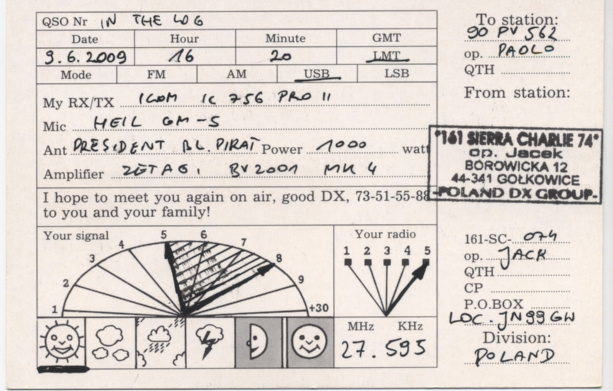 QSO Nr IN THE LOG
Date Hour Minute GMT
9.6.2009 16 20 LMT
Mode FM AM USB LSB
My RX/TX ICOM IC 756 PRO II
Mic HEIL GM-5
Ant PRESIDENT BL. PIRAT Power 1000 watt
Amplifier ZETAGI BV2001 MK 4
I hope to meet you again on air, good DX, 73-51-55-88
to you and your family!
Your signal
1 2 3 4 5 6 7 8 9 +30
Your radio
1 2 3 4 5
MHz KHz
27.595
To station:
90 PV 562
op. PAOLO
QTH
From station:
"161 SIERRA CHARLIE 74"
op. Jacek
BOROWICKA 12
44-341 GOŁKOWICE
-POLAND DX GROUP-
161-SC- 074
op. JACK
QTH
CP
P.O.BOX
LOC. JN99GW
Division:
POLAND